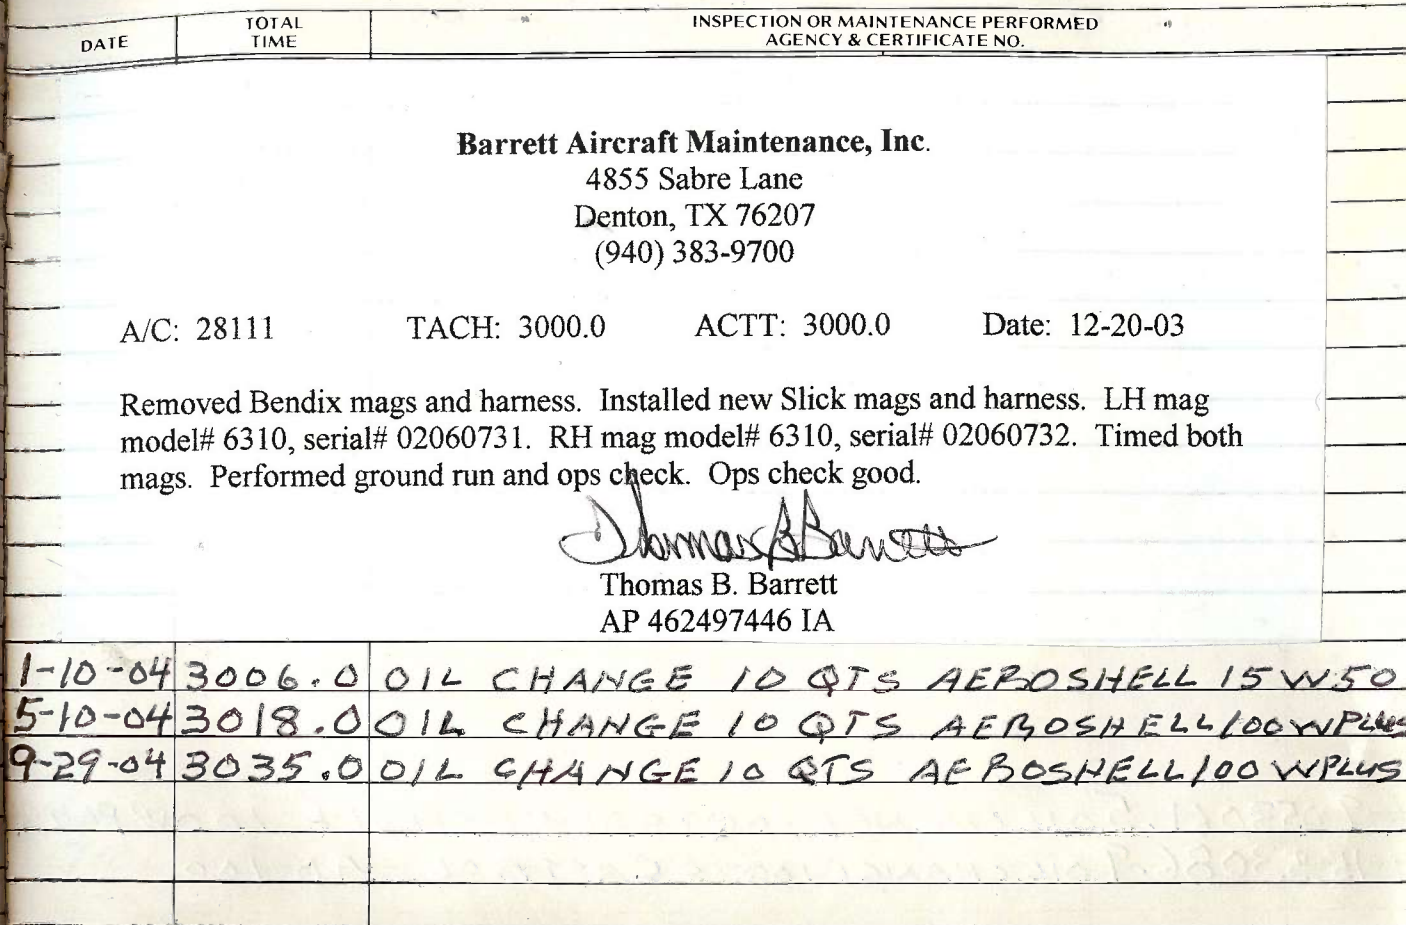 DATE
TOTAL TIME
INSPECTION OR MAINTENANCE PERFORMED
AGENCY & CERTIFICATE NO.
Barrett Aircraft Maintenance, Inc.
4855 Sabre Lane
Denton, TX 76207
(940) 383-9700
A/C: 28111 TACH: 3000.0 ACTT: 3000.0 Date: 12-20-03
Removed Bendix mags and harness. Installed new Slick mags and harness. LH mag
model# 6310, serial# 02060731. RH mag model# 6310, serial# 02060732. Timed both
mags. Performed ground run and ops check. Ops check good.
Thomas B Barrett
Thomas B. Barrett
AP 462497446 IA
1-10-04 3006.0 OIL CHANGE 10 QTS AEROSHELL 15W50
5-10-04 3018.0 OIL CHANGE 10 QTS AEROSHELL 100WPLUS
9-29-04 3035.0 OIL CHANGE 10 QTS AEROSHELL 100WPLUS